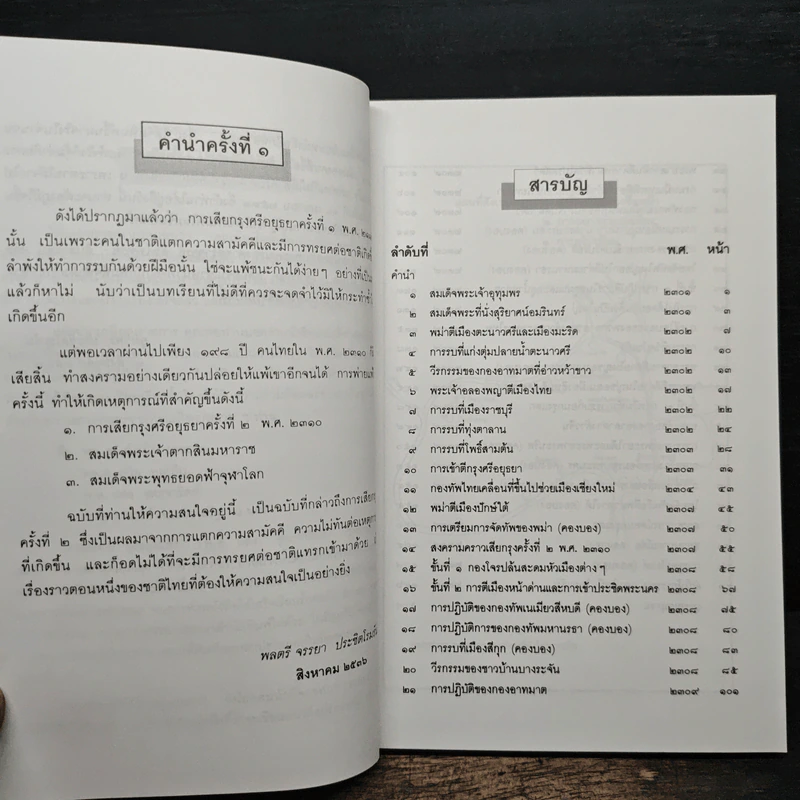 คำนำครั้งที่ ๑
ดังได้ปรากฏมาแล้วว่า การเสียกรุงศรีอยุธยาครั้งที่ ๑ พ.ศ.
นั้น เป็นเพราะคนในชาติแตกความสามัคคีและมีการทรยศต่อชาติเกิด
ลำพังให้ทำการรบกันด้วยฝีมือนั้น ใช่จะแพ้ชนะกันได้ง่ายๆ อย่างที่เป็น
แล้วก็หาไม่ นับว่าเป็นบทเรียนที่ไม่ดีที่ควรจะจดจำไว้มิให้กระทำ
เกิดขึ้นอีก
แต่พอเวลาผ่านไปเพียง ๑๙๘ ปี คนไทยใน พ.ศ. ๒๓๑๐
เสียสิ้น ทำสงครามอย่างเดียวกันปล่อยให้แพ้เขาอีกจนได้ การพ่าย
ครั้งนี้ ทำให้เกิดเหตุการณ์ที่สำคัญขึ้นดังนี้
๑. การเสียกรุงศรีอยุธยาครั้งที่ ๒ พ.ศ. ๒๓๑๐
๒. สมเด็จพระเจ้าตากสินมหาราช
๓. สมเด็จพระพุทธยอดฟ้าจุฬาโลก
ฉบับที่ท่านให้ความสนใจอยู่นี้ เป็นฉบับที่กล่าวถึงการเสียกรุง
ครั้งที่ ๒ ซึ่งเป็นผลมาจากการแตกความสามัคคี ความไม่ทันต่อเหตุ
ที่เกิดขึ้น และก็อดไม่ได้ที่จะมีการทรยศต่อชาติแทรกเข้ามาด้วย
เรื่องราวตอนหนึ่งของชาติไทยที่ต้องให้ความสนใจเป็นอย่างยิ่ง
พลตรี จรรยา ประชิตโรมรัน
สิงหาคม ๒๕๓๖
สารบัญ
ลำดับที่ พ.ศ. หน้า
คำนำ
๑ สมเด็จพระเจ้าอุทุมพร ๒๓๐๑ ๑
๒ สมเด็จพระที่นั่งสุริยาศน์อมรินทร์ ๒๓๐๑ ๓
๓ พม่าตีเมืองตะนาวศรีและเมืองมะริด ๒๓๐๒ ๗
๔ การรบที่แก่งตุ่มปลายน้ำตะนาวศรี ๒๓๐๒ ๑๐
๕ วีรกรรมของกองอาทมาตที่อ่าวหว้าขาว ๒๓๐๒ ๑๓
๖ พระเจ้าอลองพญาตีเมืองไทย ๒๓๐๒ ๑๗
๗ การรบที่เมืองราชบุรี ๒๓๐๒ ๒๒
๘ การรบที่ทุ่งตาลาน ๒๓๐๒ ๒๔
๙ การรบที่โพธิ์สามต้น ๒๓๐๓ ๒๘
๑๐ การเข้าตีกรุงศรีอยุธยา ๒๓๐๓ ๓๑
๑๑ กองทัพไทยเคลื่อนที่ขึ้นไปช่วยเมืองเชียงใหม่ ๒๓๐๔ ๔๓
๑๒ พม่าตีเมืองปักษ์ใต้ ๒๓๐๗ ๔๕
๑๓ การเตรียมการจัดทัพของพม่า (คองบอง) ๒๓๐๗ ๕๐
๑๔ สงครามคราวเสียกรุงครั้งที่ ๒ พ.ศ. ๒๓๑๐ ๒๓๐๗ ๕๕
๑๕ ขั้นที่ ๑ กองโจรปล้นสะดมหัวเมืองต่างๆ ๒๓๐๘ ๕๘
๑๖ ขั้นที่ ๒ การตีเมืองหน้าด่านและการเข้าประชิดพระนคร ๒๓๐๘ ๖๗
๑๗ การปฏิบัติของกองทัพเนเมียวสีหบดี (คองบอง) ๒๓๐๘ ๗๕
๑๘ การปฏิบัติการของกองทัพมหานรธา (คองบอง) ๒๓๐๘ ๘๐
๑๙ การรบที่เมืองสีกุก (คองบอง) ๒๓๐๘ ๘๓
๒๐ วีรกรรมของชาวบ้านบางระจัน ๒๓๐๘ ๘๕
๒๑ การปฏิบัติของกองอาทมาต ๒๓๐๙ ๑๐๑